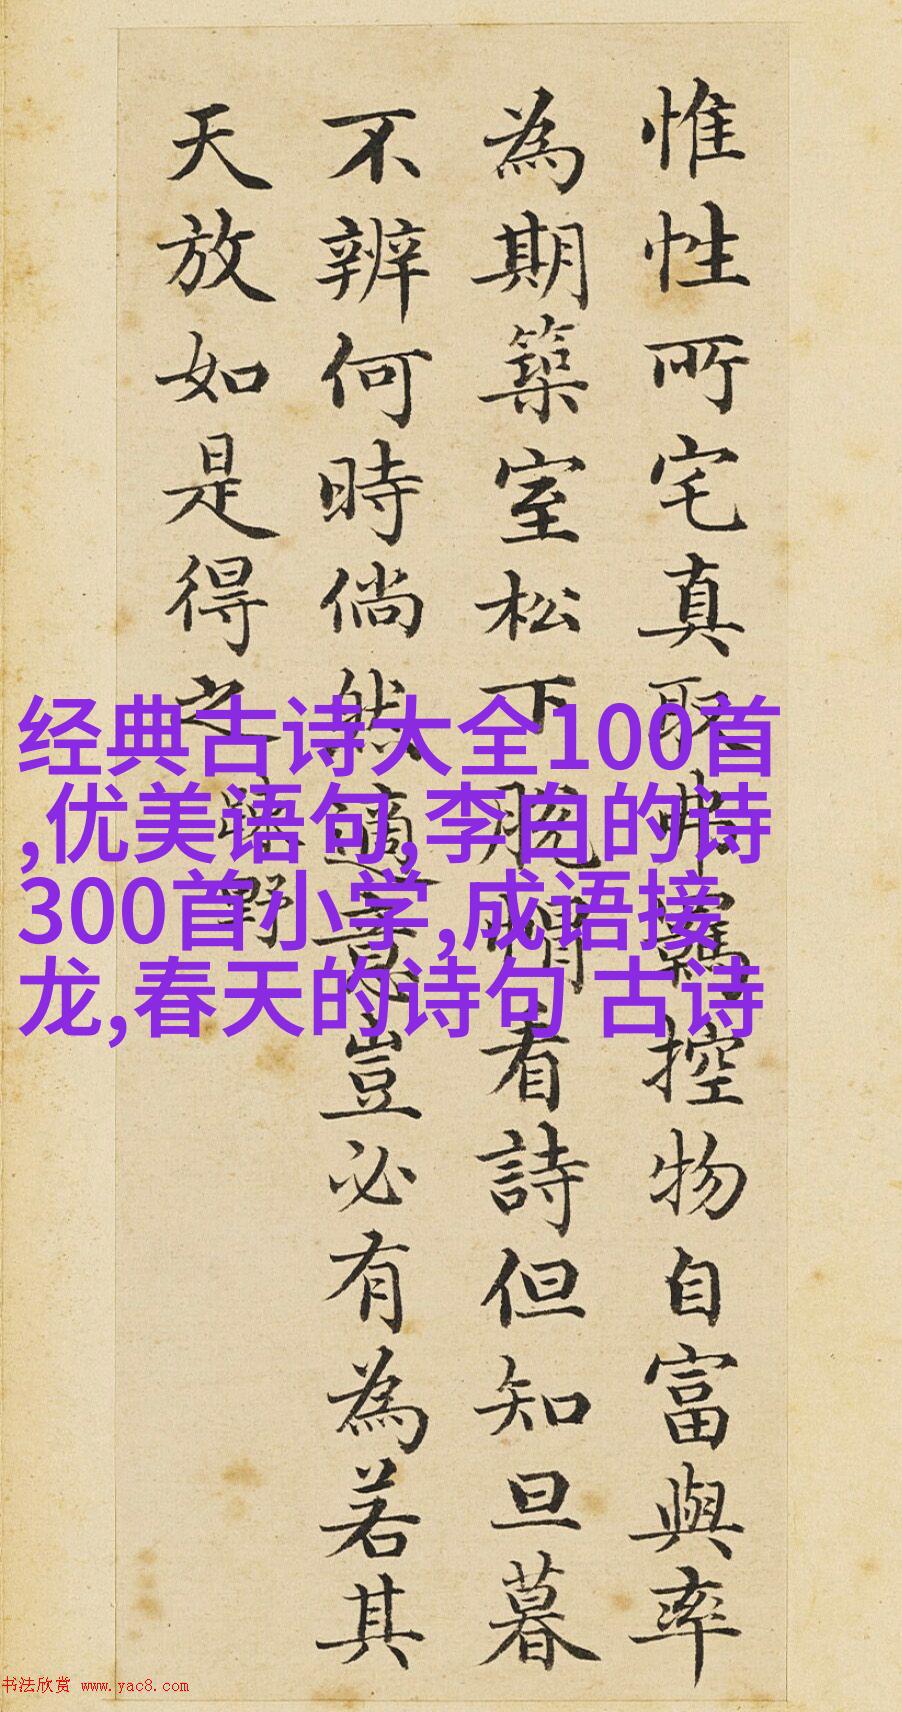 惟性所宅真取弗羈控物自富與率
為期築室松下脱帽看詩但知旦暮
不辨何時倘然適意豈必有為若其
天放如是得之
疎野
经典古诗大全100首
,优美语句,李白的诗
300首小学,成语接
龙,春天的诗句 古诗
书法欣赏 www.yac8.com